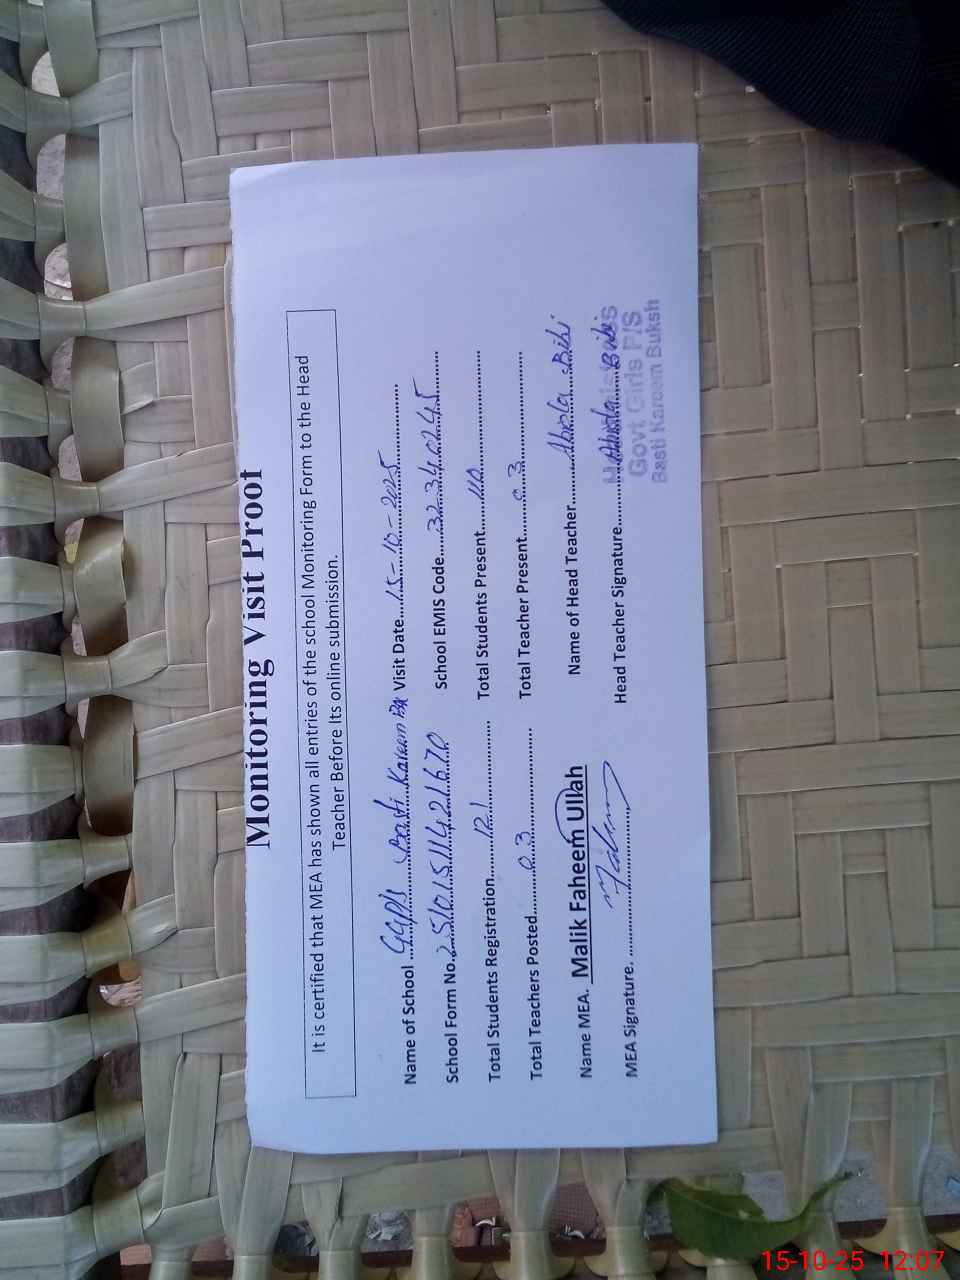 Monitoring Visit Proof
It is certified that MEA has shown all entries of the school Monitoring Form to the Head
Teacher Before Its online submission.
Name of School GGP/S Basti Kareem BX Visit Date 15-10-2025
School Form No. 251015114216 School EMIS Code 32340245
Total Students Registration 121 Total Students Present 110
Total Teachers Posted 03 Total Teacher Present 03
Name MEA. Malik Faheem Ullah Name of Head Teacher Bibi
MEA Signature. Head Teacher Signature Bibi
Govt Girls P/S
Basti Kareem Buksh
15-10-25 12:07